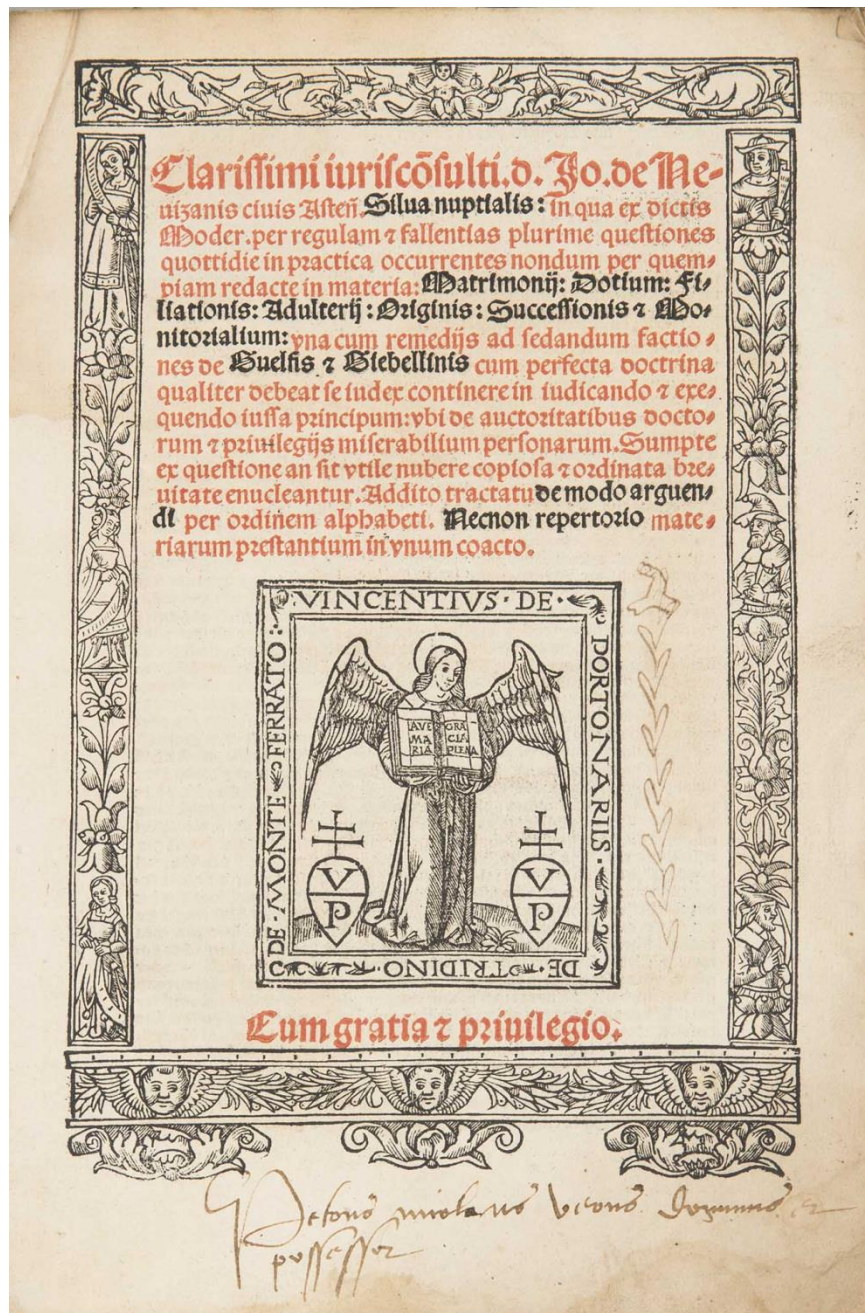 Clarissimi iuriscōsulti. d. Jo. de Ne-
uizanis ciuis Asteñ. Silua nuptialis: in qua ex dictis
Moder. per regulam ⁊ fallentias plurime questiones
quottidie in practica occurrentes nondum per quem-
piam redacte in materia: Matrimonij: Dotium: Fi-
liationis: Adulterij: Originis: Successionis ⁊ Mo-
nitorialium: vna cum remedijs ad sedandum factio-
nes de Guelfis ⁊ Giebellinis cum perfecta doctrina
qualiter debeat se iudex continere in iudicando ⁊ exe-
quendo iussa principum: vbi de auctoritatibus docto-
rum ⁊ priuilegijs miserabilium personarum. Sumpte
ex questione an sit vtile nubere copiosa ⁊ ordinata bre-
uitate enucleantur. Addito tractatu de modo arguen-
di per ordinem alphabeti. Necnon repertorio mate-
riarum prestantium in vnum coacto.
VINCENTIVS · DE ·
PORTONARIIS ·
DE · TRIDINO ·
DE · MONTE FERRATO :
AVE GRA
MA CIA
RIA PLENA
V V
P P
Cum gratia ⁊ priuilegio.
possessor